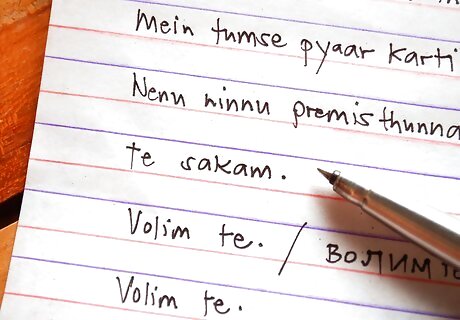 Mein tumse pyaar karti
Nenu ninnu premisthunna
te sakam.
Volim te. / ВОЛИМ те
Volim te.